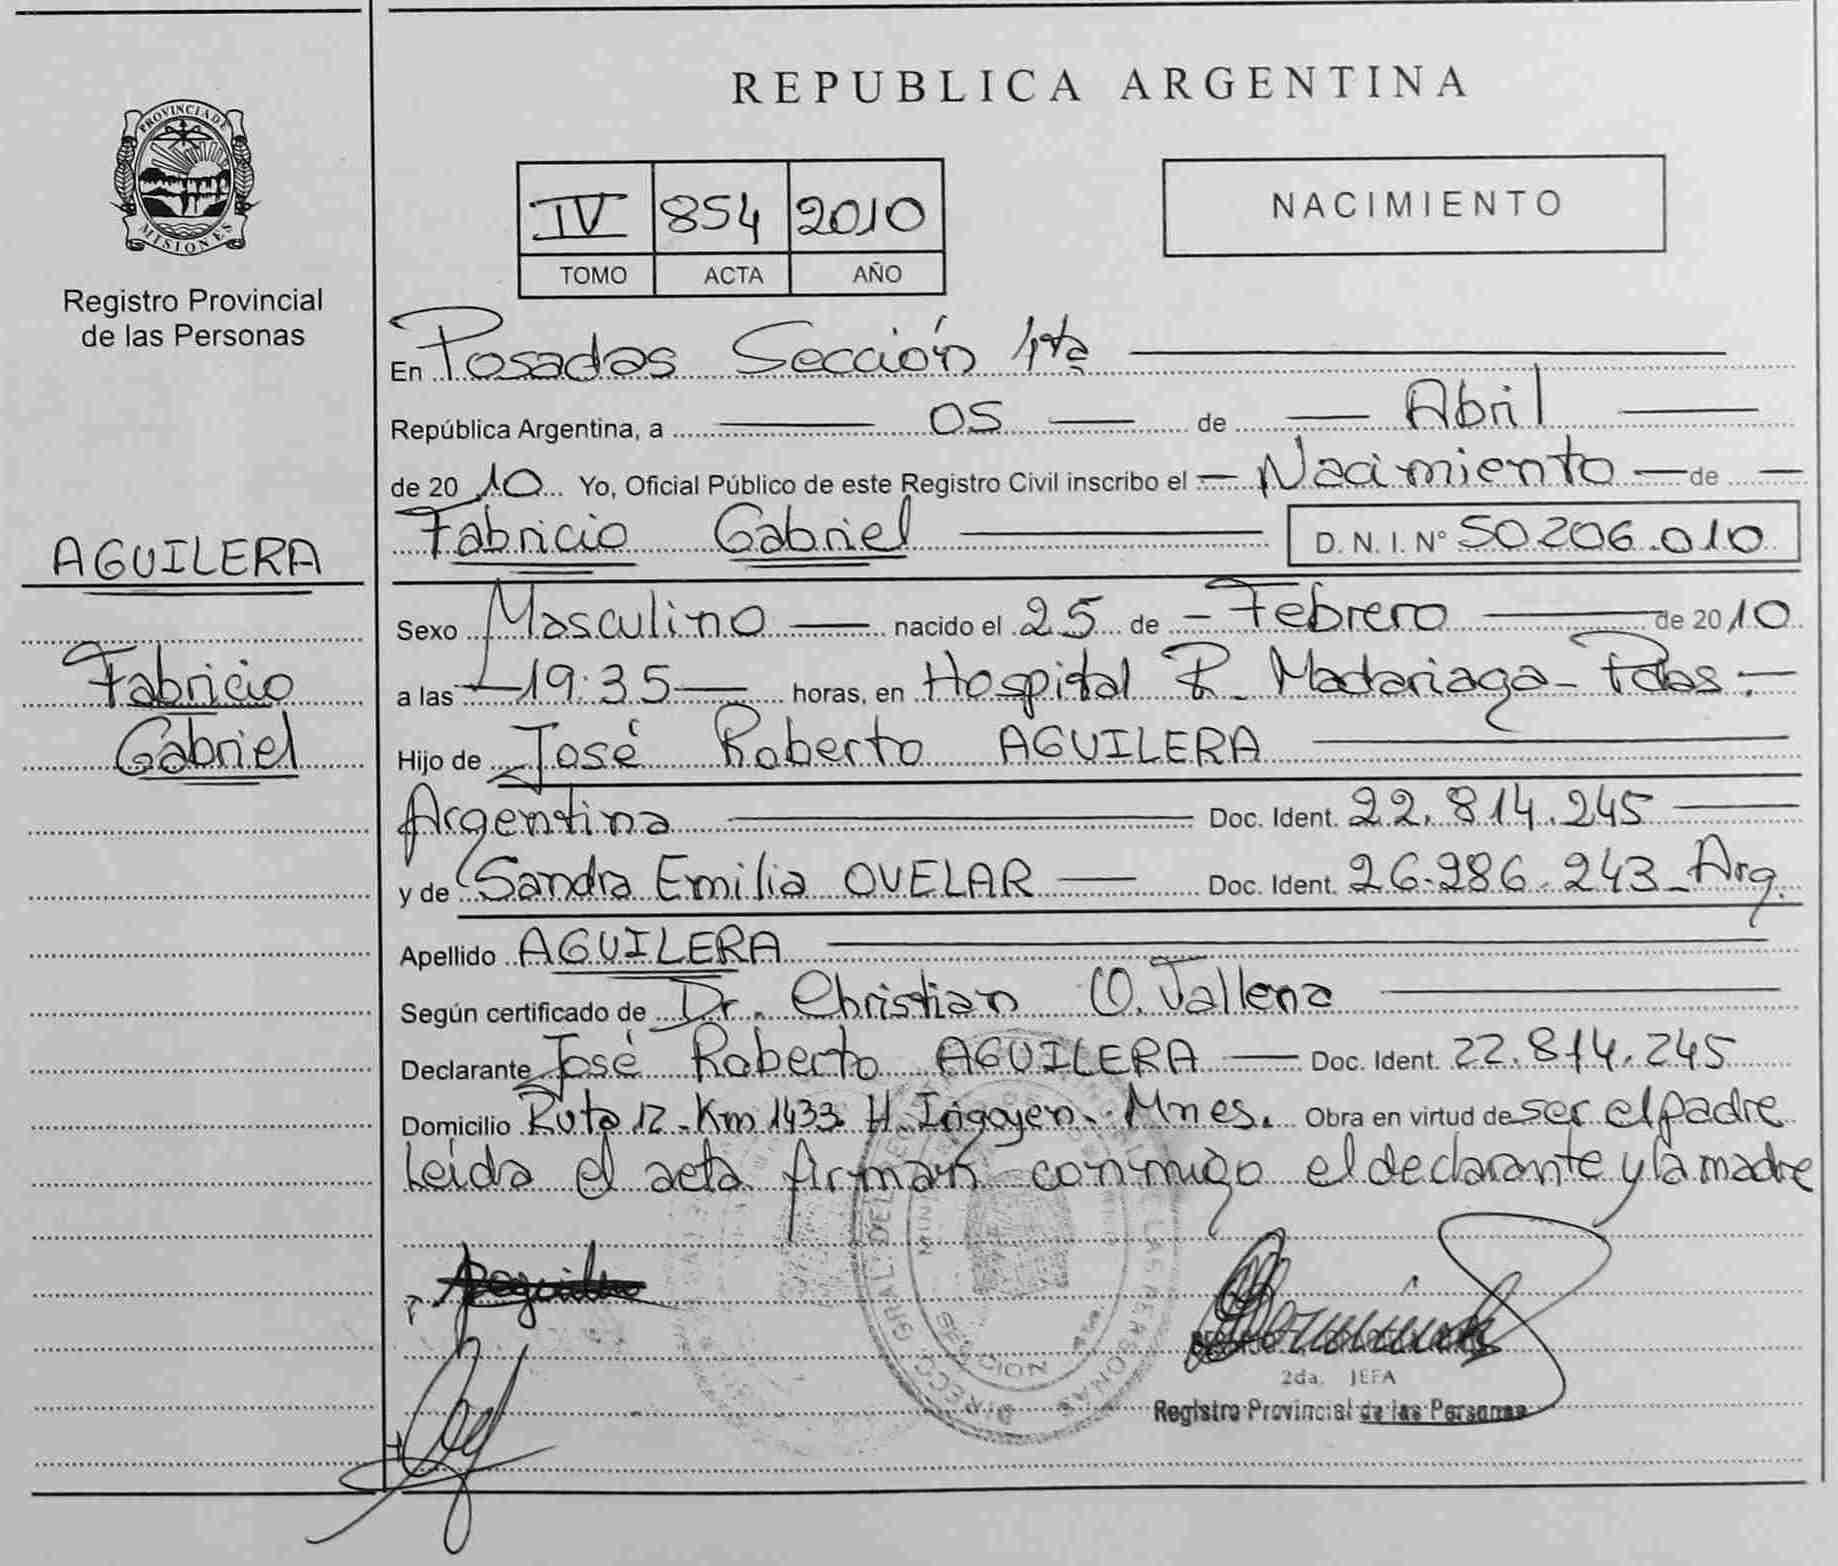 REPUBLICA ARGENTINA
PROVINCIA DE
MISIONES
Registro Provincial
de las Personas
IV 854 2010
TOMO ACTA AÑO
NACIMIENTO
En Posadas Sección 4ta
República Argentina, a 05 de Abril
de 2010 Yo, Oficial Público de este Registro Civil inscribo el Nacimiento de
Fabricio Gabriel D. N. I. N° 50.206.010
AGUILERA
Fabricio
Gabriel
Sexo Masculino nacido el 25 de Febrero de 2010
a las 19:35 horas, en Hospital R. Madariaga - Pdas.-
Hijo de José Roberto AGUILERA
Argentina Doc. Ident. 22.814.245
y de Sandra Emilia OVELAR Doc. Ident. 26.286.243 - Arg.
Apellido AGUILERA
Según certificado de Dr. Christian O. Jallena
Declarante José Roberto AGUILERA Doc. Ident. 22.814.245
Domicilio Ruta 12 - Km 1433 H. Irigoyen - Mnes. Obra en virtud de ser el padre
Leída el acta firman conmigo el declarante y la madre
2da. JEFA
Registro Provincial de las Personas